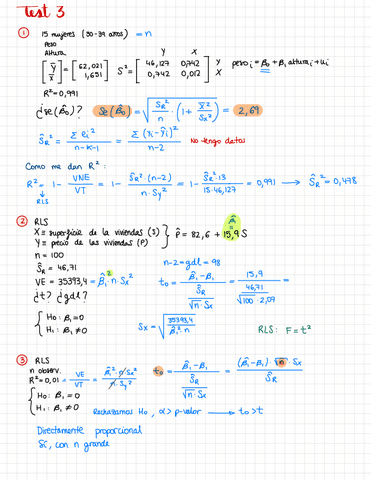 Test 3
① 15 mujeres (30-39 años) = n
Peso
Altura
Y X
[ȳ x̄] = [62,021 1,651] S² = [46,127 0,742 0,742 0,012] Y X peso i = β₀ + β₁ altura i + ui
R² = 0,991
¿se(β̂₀)? Se(β̂₀) = √(ŜR²/n · (1 + x̄²/Sx²)) = 2,69
ŜR² = Σei²/(n-k-1) = Σ(yi-ŷi)²/(n-2) No tengo datos
Como me dan R²:
R² = 1 - VNE/VT = 1 - ŜR²·(n-2)/(n·Sy²) = 1 - ŜR²·13/(15·46,127) = 0,991 → ŜR² = 0,478
RLS
② RLS
X = superficie de la viviendas (S)
Y = precio de las viviendas (P)
} P̂ = 82,6 + 15,9 S
β̂₁
n = 100
ŜR = 46,71
VE = 35393,4 = β̂₁²·n·Sx²
¿t? ¿gdl?
n-2 = gdl = 98
t₀ = (β̂₁-β₁)/(ŜR/(√n·Sx)) = 15,9/(46,71/(√100·2,07)) =
{ H₀: β₁ = 0
H₁: β₁ ≠ 0
Sx = √(35393,4/(β̂₁²·n))
RLS: F = t²
③ RLS
n observ.
R² = 0,01 = VE/VT = β̂₁²·n·Sx²/(n·Sy²)
t₀ = (β̂₁-β₁)/(ŜR/(√n·Sx)) = (β̂₁-β₁)·√n·Sx/ŜR
{ H₀: β₁ = 0
H₁: β₁ ≠ 0
Rechazamos H₀, α > p-valor → t₀ > t
Directamente proporcional
Sí, con n grande